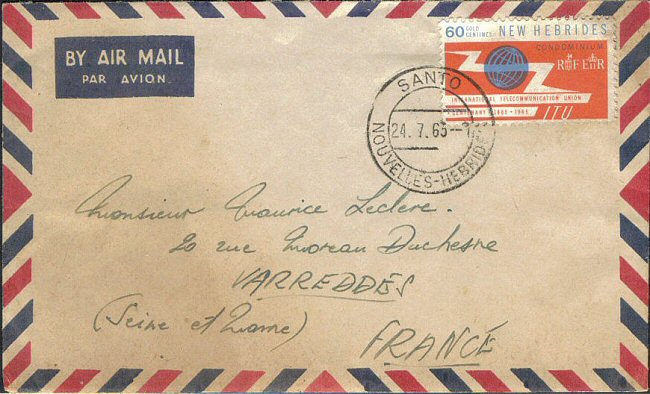 BY AIR MAIL
PAR AVION
60 GOLD CENTIMES NEW HEBRIDES
CONDOMINIUM
RF EIIR
INTERNATIONAL TELECOMMUNICATION UNION
CENTENARY 1865 - 1965
ITU
SANTO
24.7.65
NOUVELLES-HEBRIDES
Monsieur Maurice Leclere.
20 rue Moreau Duchesne
VARREDDES
(Seine et Marne)
FRANCE